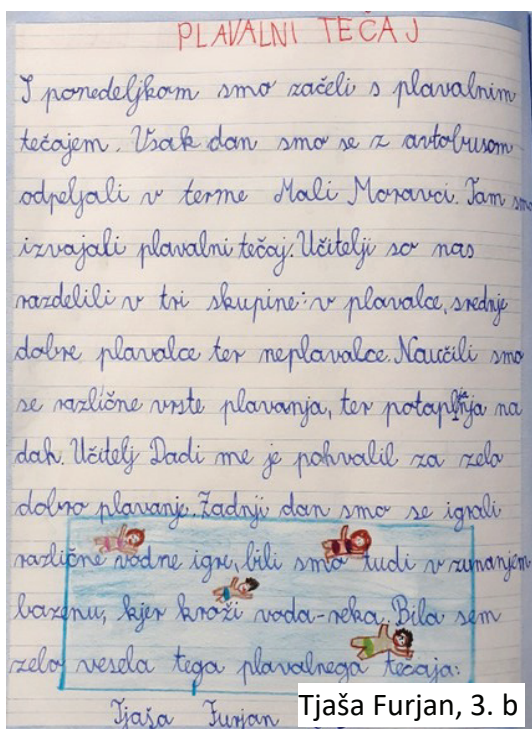 PLAVALNI TEČAJ
S ponedeljkom smo začeli s plavalnim
tečajem. Vsak dan smo se z avtobusom
odpeljali v terme Mali Moravci. Tam smo
izvajali plavalni tečaj. Učitelji so nas
razdelili v tri skupine: v plavalce, srednje
dobre plavalce ter neplavalce. Naučili smo
se različne vrste plavanja, ter potapljanja na
dah. Učitelj Dadi me je pohvalil za zelo
dobro plavanje. Zadnji dan smo se igrali
različne vodne igre, bili smo tudi v zunanjem
bazenu, kjer kroži voda-reka. Bila sem
zelo vesela tega plavalnega tečaja.
Tjaša Furjan
Tjaša Furjan, 3. b